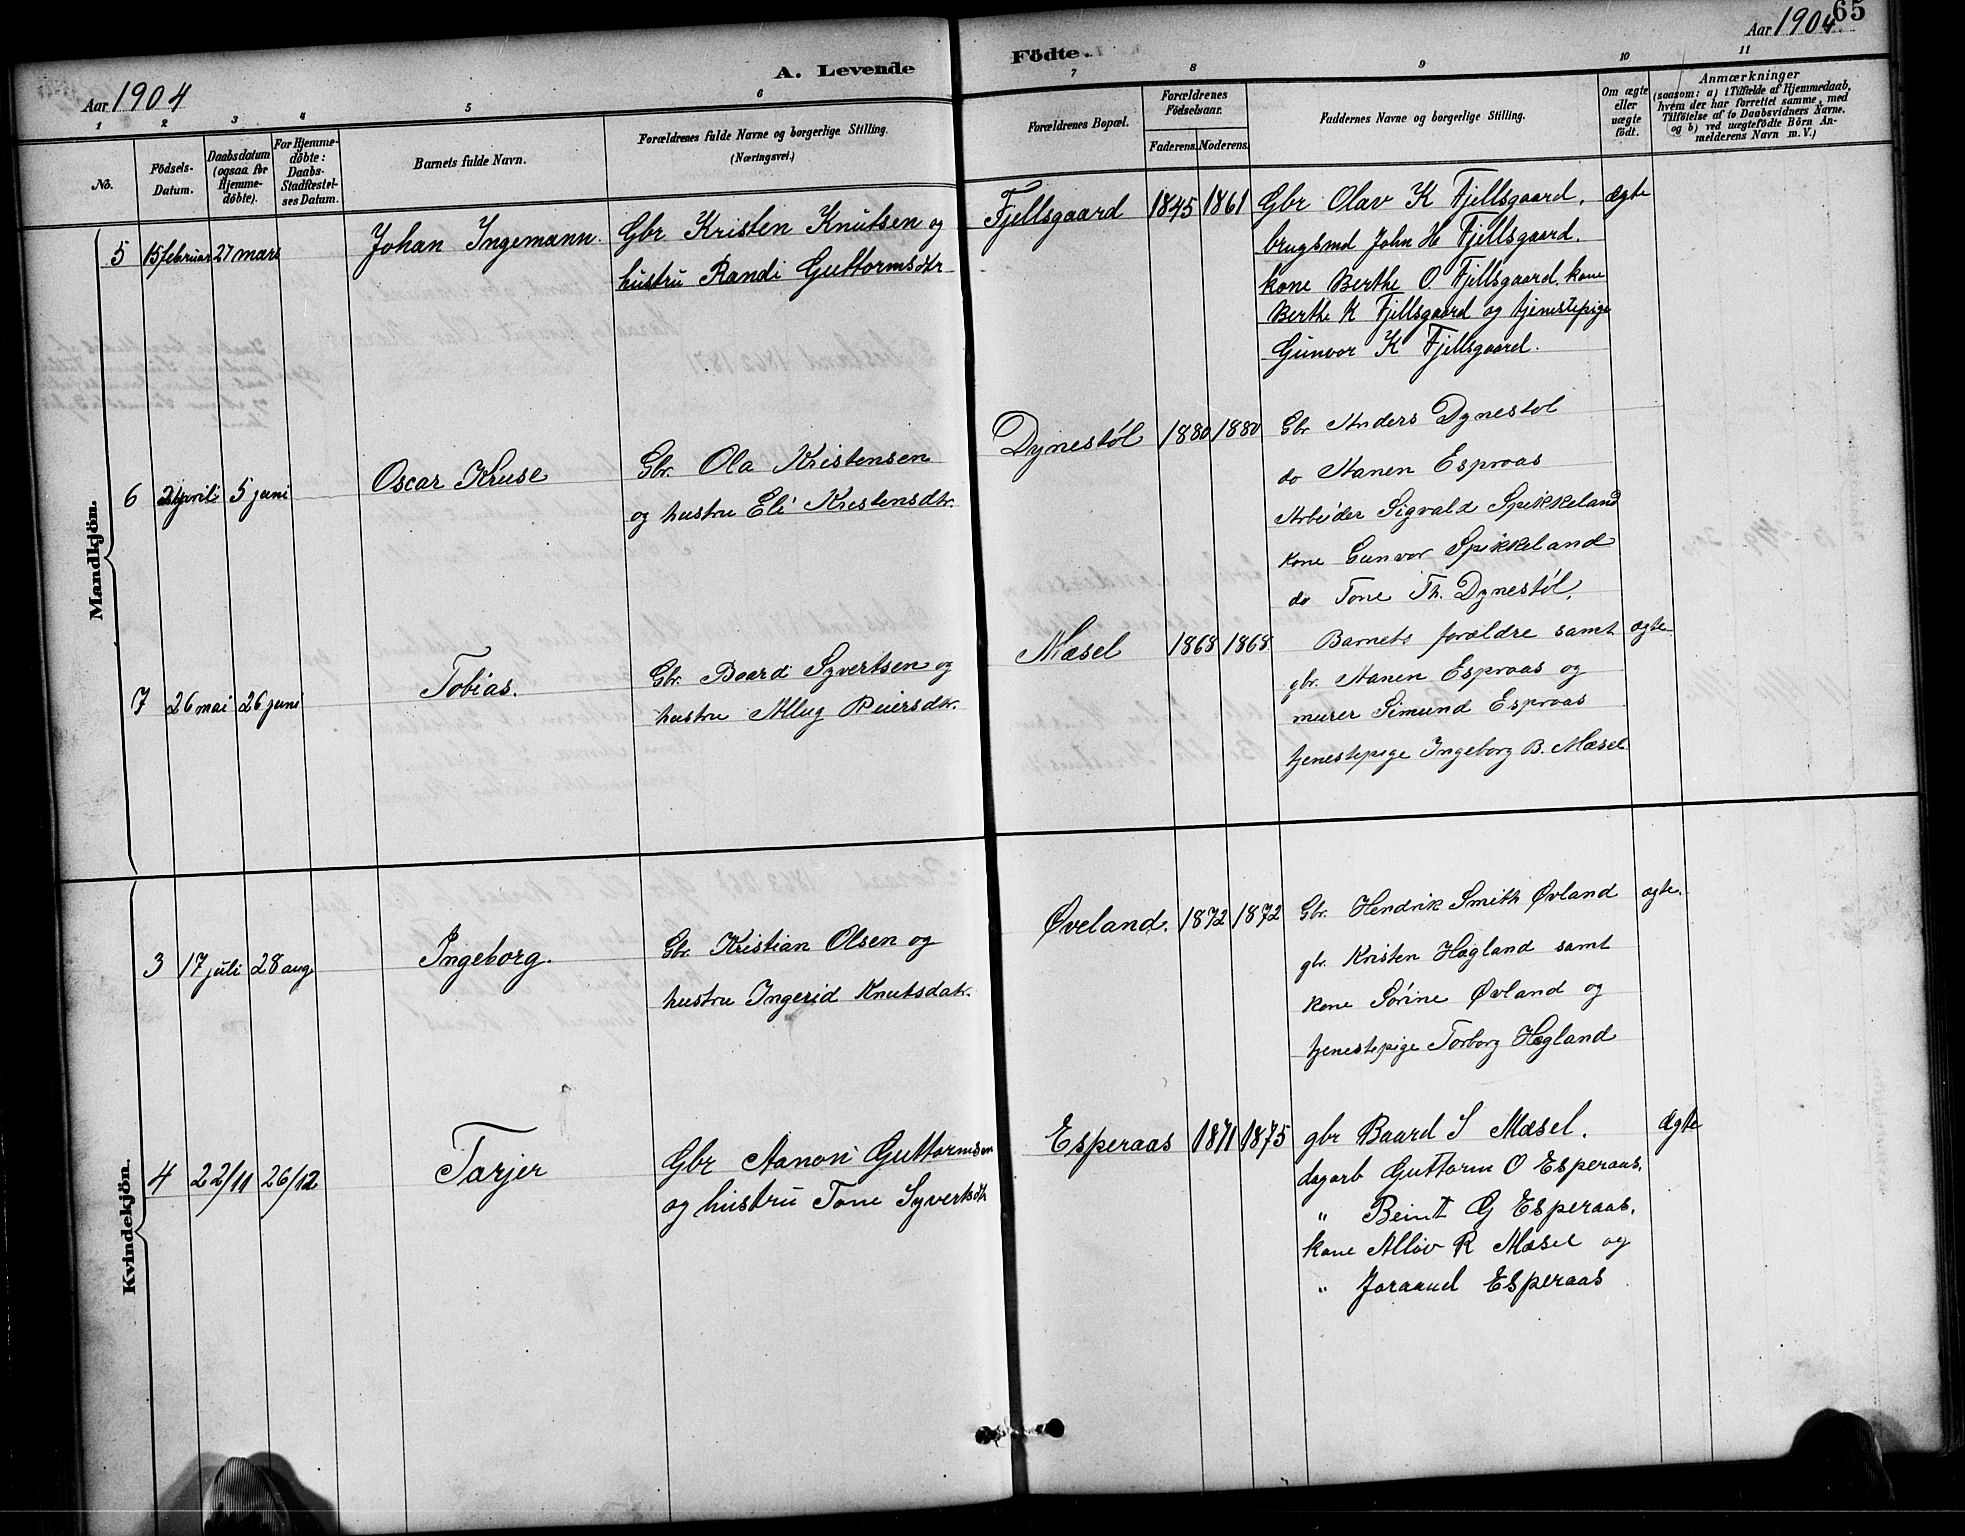 65
Aar 1904
A. Levende Födte.
Aar 1904.
1 2 3 4 5 6 7 8 9 10 11
No.
Födsels-
Datum.
Daabsdatum
(ogsaa for
Hjemme-
döbte).
For Hjemme-
döbte:
Daabs-
Stadfæstel-
ses Datum.
Barnets fulde Navn.
Forældrenes fulde Navne og borgerlige Stilling.
(Næringsvei.)
Forældrenes Bopæl.
Forældrenes
Födselsaar.
Faderens. Moderens.
Faddernes Navne og borgerlige Stilling.
Om ægte
eller
uægte
født.
Anmærkninger
(saasom: a) i Tilfælde af Hjemmedaab,
hvem der har forrettet samme, med
Tilföielse af to Daabsvidners Navne.
og b) ved uægtefödte Börn An-
melderens Navn m. V.)
Mandkjön.
5 15 februar 27 mars Johan Ingemann. Gbr Kristen Knutsen og
hustru Randi Guttormsdtr
Fjellsgaard 1845 1861 Gbr Olav K Fjellsgaard. ægte
brugsmd John H Fjellsgaard.
kone Berthe O. Fjellsgaard. kone
Berthe K Fjellsgaard og tjenestepige
Gunvor K Fjellsgaard.
6 april 5 juni Oscar Kruse Gbr. Ola Kristensen
og hustru Eli Kristensdtr.
Dynestøl 1880 1880 Gbr Anders Dynestøl
do Aanen Espraas
Arbeider Sigvald Spikkeland
kone Gunvor Spikkeland
do Tone Th. Dynestøl.
7 26 mai 26 juni Tobias. Gbr. Baard Syvertsen og
hustru Allug Reiersdtr.
Mæsel 1868 1868 Barnets forældre samt ægte
gbr. Aanen Espraas og
murer Simund Espraas
tjenestepige Ingeborg B. Mæsel.
Kvindekjön.
3 17 juli 28 aug Ingeborg. Gbr. Kristian Olsen og
hustru Ingerid Knutsdatr.
Øveland. 1872 1872 Gbr. Hendrik Smith Øvland ægte.
gbr. Kristen Hægland samt
kone Sørine Øvland og
tjenestepige Torborg Hægland
4 22/11 26/12 Tarjer Gbr Aanon Guttormsen
og hustru Tone Syvertsdtr
Esperaas 1871 1875 gbr Baard S Mæsel. ægte
dagarb Guttorm O Esperaas.
" Beint G Esperaas.
kone Alløv R Mæsel og
" Joraand Esperaas